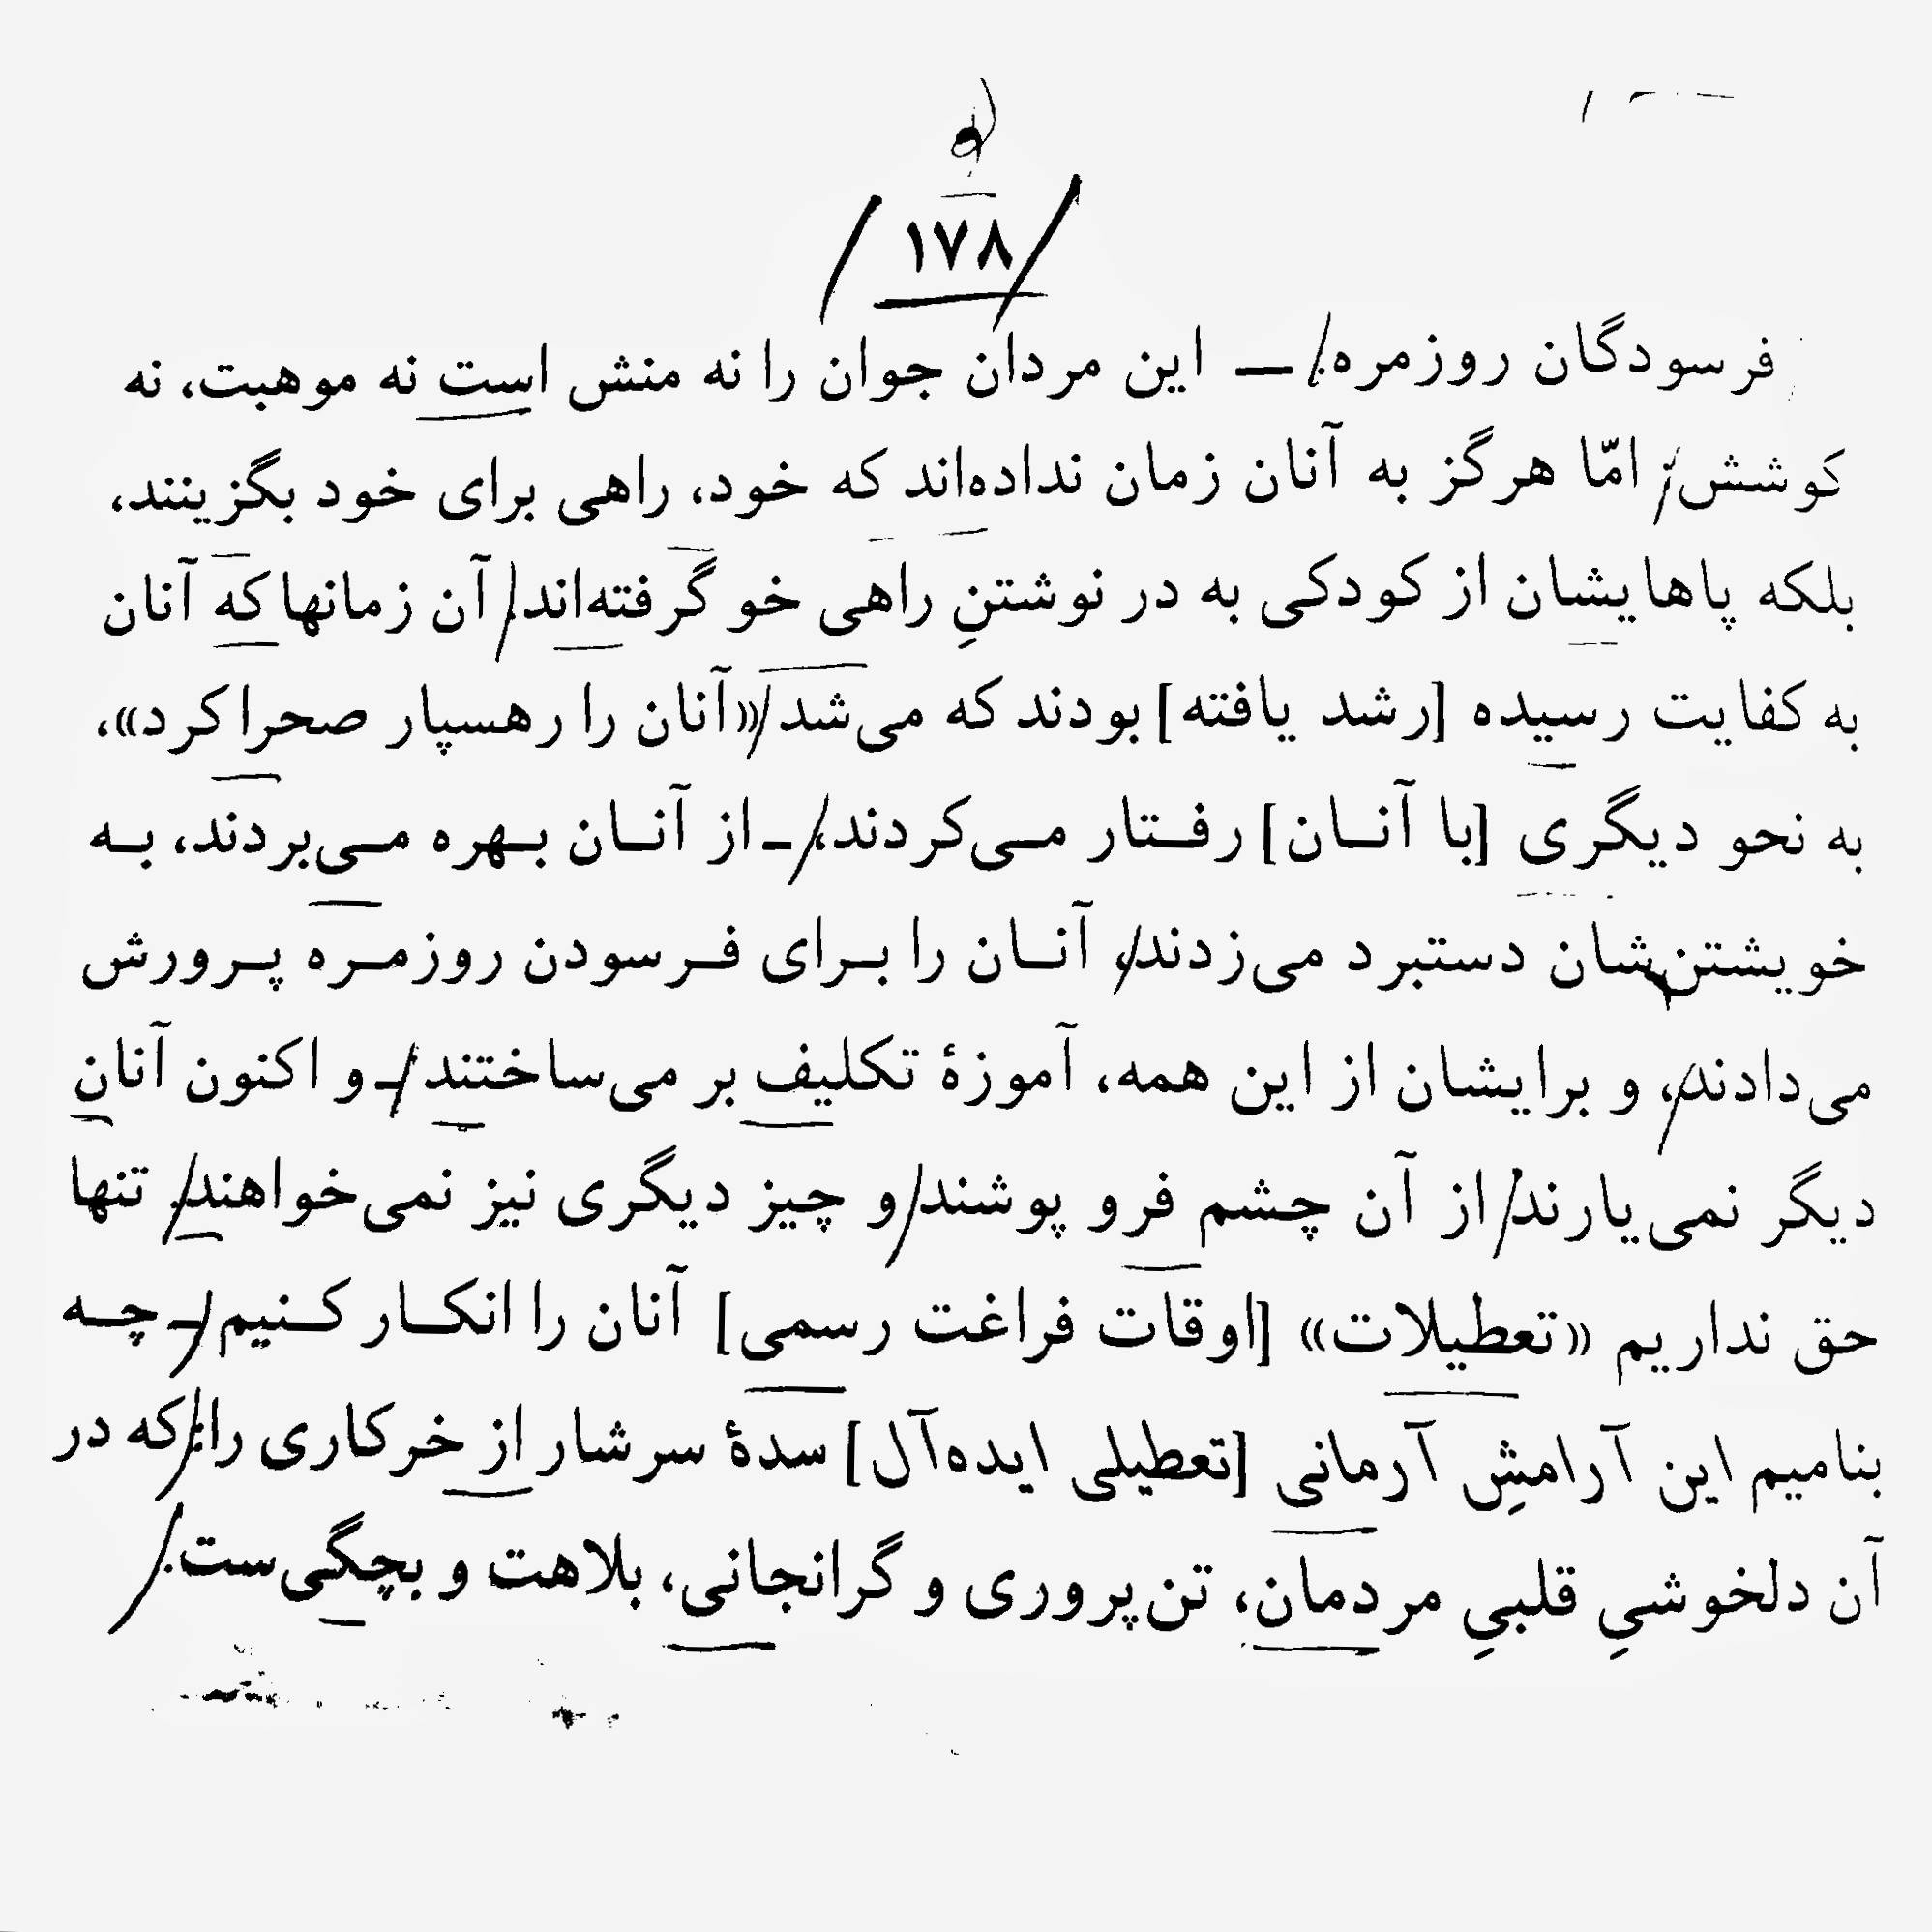 ۱۷۸
فرسودگان روزمره. — این مردان جوان را نه منش است نه موهبت، نه
کوشش؛ امّا هرگز به آنان زمان نداده‌اند که خود، راهی برای خود بگزینند،
بلکه پاهایشان از کودکی به در نوشتنِ راهی خو گرفته‌اند. آن زمانها که آنان
به کفایت رسیده [رشد یافته] بودند که می‌شد «آنان را رهسپار صحرا کرد»،
به نحو دیگری [با آنان] رفتار می‌کردند، ـ از آنان بهره می‌بردند، به
خویشتن‌شان دستبرد می‌زدند، آنان را برای فرسودن روزمره پرورش
می‌دادند، و برایشان از این همه، آموزهٔ تکلیف بر می‌ساختند ـ و اکنون آنان
دیگر نمی‌یارند از آن چشم فرو پوشند و چیز دیگری نیز نمی‌خواهند. تنها
حق نداریم «تعطیلات» [اوقات فراغت رسمی] آنان را انکار کنیم ـ چه
بنامیم این آرامشِ آرمانی [تعطیلی ایده‌آل] سدهٔ سرشار از خرکاری را: که در
آن دلخوشیِ قلبیِ مردمان، تن‌پروری و گرانجانی، بلاهت و بچگی‌ست.